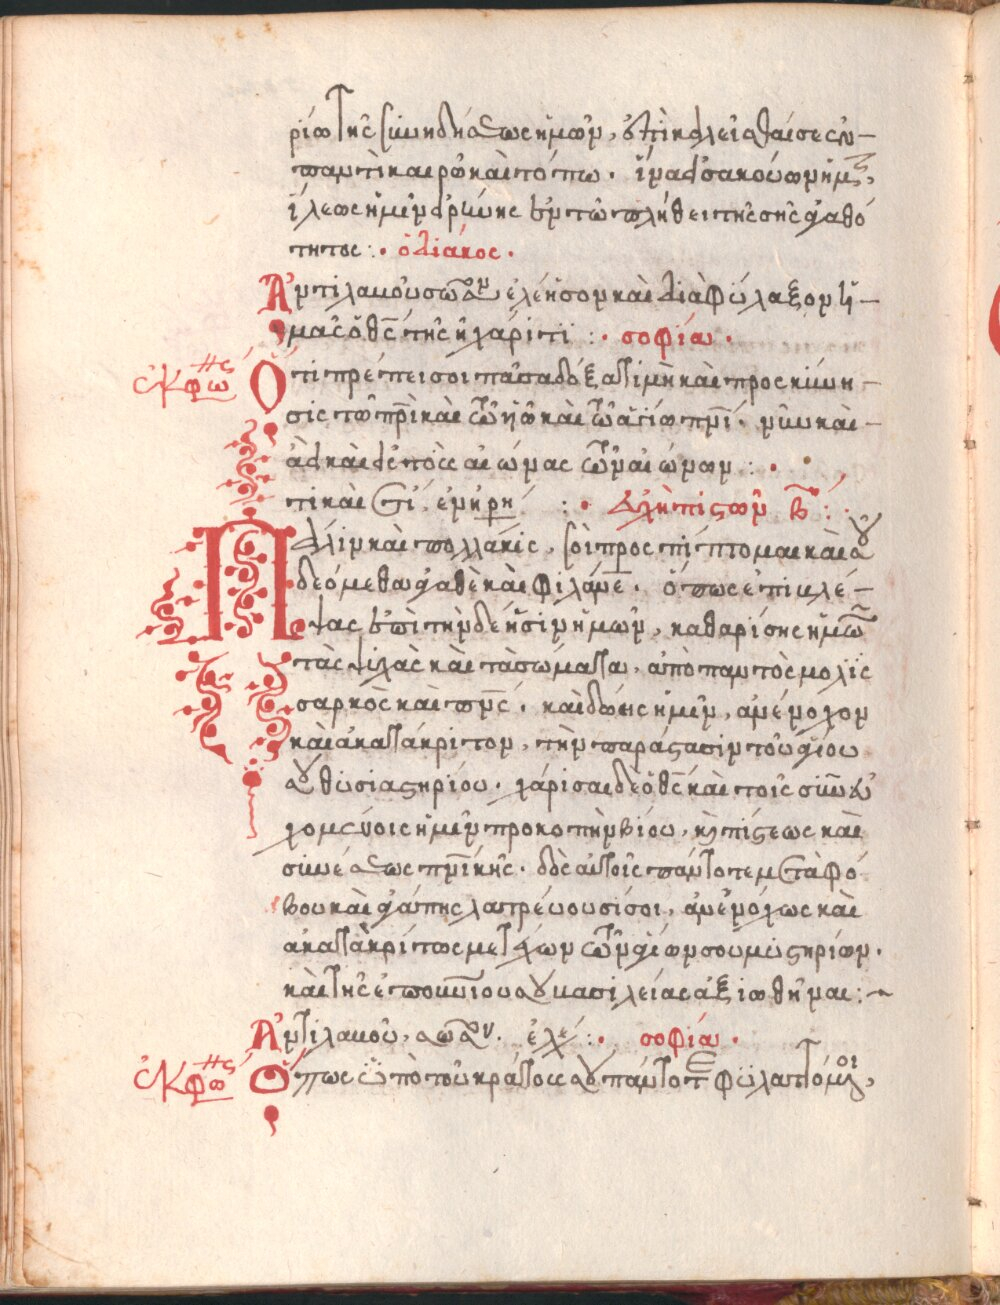 ρίω τῆς συνηδήσεως ἡμῶν, ἐπικαλεῖσθαί σε ἐν
παντὶ καιρῷ καὶ τόπω. ἵνα εἰσακούων ἡμῶν,
ἵλεως ἡμῖν εἴης ἐν τῶ πλήθει τῆς σῆς ἀγαθό
τητος: · ὁ διάκος ·
Ἀντιλαμοῦ σῶσον ἐλέησον καὶ διαφύλαξον ἡ
μᾶς ὁ θς τῆς χάριτι : · σοφία ·
ἐκφώ της
Ὅτι πρέπει σοι πᾶσα δόξα τιμὴ καὶ προσκύνη
σις τῶ πρὶ καὶ τῶ υἱῶ καὶ τῶ ἁγίω πνὶ · νῦν καὶ
ἀεὶ καὶ εἰς τοὺς αἰώνας τῶν αἰώνων : ·
εὐχὴ πιστῶν β : ·
Πάλιν καὶ πολλάκις, σοὶ προσπίπτομεν καὶ σοῦ
δεόμεθα ἀγαθὲ καὶ φιλάνε · ὅπως ἐπιβλέ
ψας ἐπὶ τὴν δέησιν ἡμῶν, καθαρίσης ἡμῶν
τὰς ψυχὰς καὶ τὰ σώματα, ἀπὸ παντὸς μολυσ
σαρκὸς καὶ πνς · καὶ δώης ἡμῖν, ἀνένοχον
καὶ ἀκατάκριτον, τὴν παράστασιν τοῦ ἁγίου
σου θυσιαστηρίου · χάρισαι δὲ ὁ θς καὶ τοῖς συνευ
χομένοις ἡμῖν προκοπὴν βίου, καὶ πίστεως καὶ
συνέσεως πνικῆς · δὸς αὐτοῖς πάντοτε μετὰ φό
βου καὶ ἀγάπης λατρεύουσί σοι, ἀνενόχως καὶ
ἀκατακρίτως μετέχων τῶν ἁγίων σου μυστηρίων ·
καὶ τῆς ἐπουνίου σου βασιλείας ἀξιωθῆναι :
Ἀντιλαμοῦ, σῶσον · ἐλέ : · σοφία ·
ἐκφώ της
Ὅπως ὑπὸ τοῦ κράτους σου πάντοτε φυλαττόμενοι,